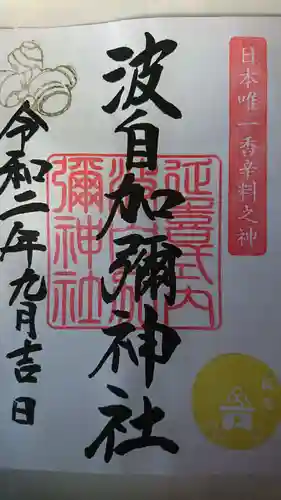 日本唯一香辛料之神
波自加彌神社
延喜式内
彌神社
令和二年九月吉日